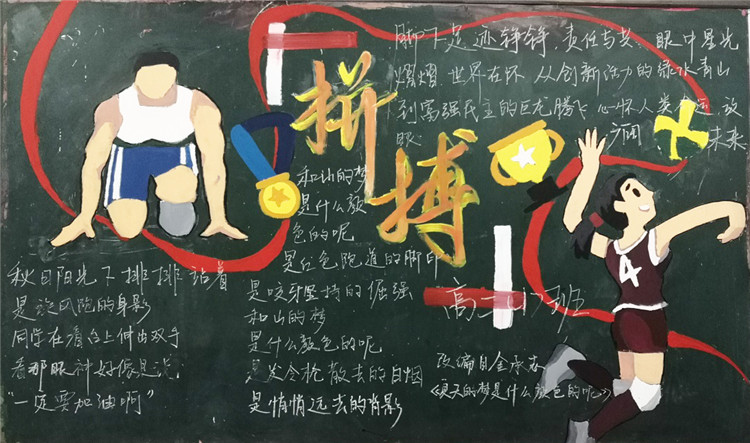 脚下足迹铮铮,责任与共 眼中星光
熠熠,世界在怀 从创新活力的绿水青山
到富强民主的巨龙腾飞 心怀人类命运 放
眼 广阔 未来
拼搏
和山的梦
是什么颜
色的呢
是红色跑道的脚印
是咬牙坚持的倔强
和山的梦
是什么颜色的呢
是发令枪散去的白烟
是悄悄远去的背影
秋日阳光下排排站着
是旋风跑的身影
同学在看台上伸出双手
看那眼神好像是说
"一定要加油啊"
高二17班
改编自金承志
《夏天的梦是什么颜色的呢》
4